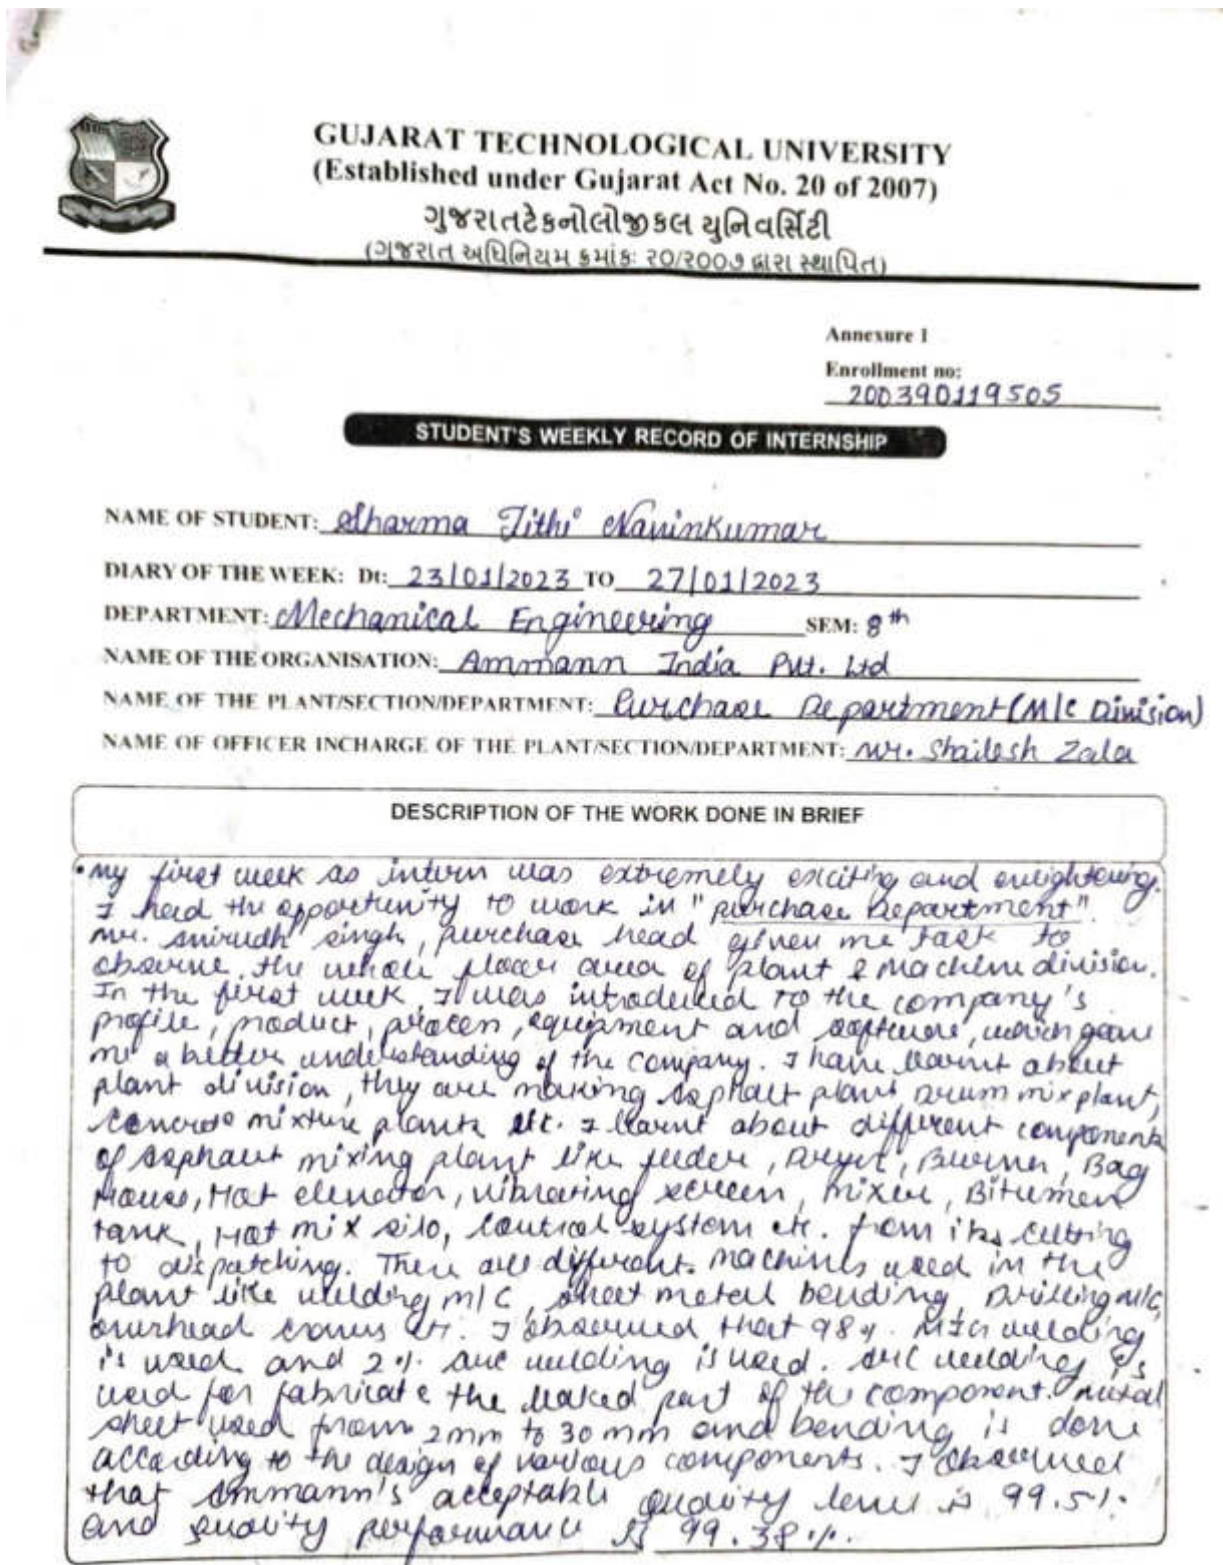 GUJARAT TECHNOLOGICAL UNIVERSITY
(Established under Gujarat Act No. 20 of 2007)
ગુજરાતટેકનોલોજીકલ યુનિવર્સિટી
(ગુજરાત અધિનિયમ ક્રમાંક: ૨૦/૨૦૦૭ દ્વારા સ્થાપિત)
Annexure 1
Enrollment no:
200390119505
STUDENT'S WEEKLY RECORD OF INTERNSHIP
NAME OF STUDENT: Sharma Tithi Navinkumar
DIARY OF THE WEEK: Dt: 23/01/2023 TO 27/01/2023
DEPARTMENT: Mechanical Engineering SEM: 8th
NAME OF THE ORGANISATION: Ammann India Pvt. Ltd
NAME OF THE PLANT/SECTION/DEPARTMENT: Purchase Department (M/C Division)
NAME OF OFFICER INCHARGE OF THE PLANT/SECTION/DEPARTMENT: Mr. Shailesh Zala
DESCRIPTION OF THE WORK DONE IN BRIEF
• My first week as intern was extremely exciting and enlightening.
I had the opportunity to work in "purchase Department".
Mr. Anirudh singh, purchase head given me task to
observe the whole floor area of plant & machine division.
In the first week, I was introduced to the company's
profile, product, process, equipment and software, which gave
me a better understanding of the company. I have learnt about
plant division, they are making Asphalt plant, Drum mix plant,
concrete mixture plants etc. I learnt about different components
of Asphalt mixing plant like feeder, Dryer, Burner, Bag
House, Hot elevator, vibrating screen, mixer, Bitumen
tank, Hot mix silo, control system etc. from its cutting
to dispatching. There are different machines used in the
plant like welding M/C, sheet metal bending, Drilling M/C,
overhead cranes etc. I observed that 98%. MIG welding
is used and 2%. arc welding is used. Arc welding is
used for fabricate the leaked part of the component. metal
sheet used from 2mm to 30mm and bending is done
according to the design of various components. I observed
that Ammann's acceptable quality level is 99.5%.
and quality performance is 99.38%.